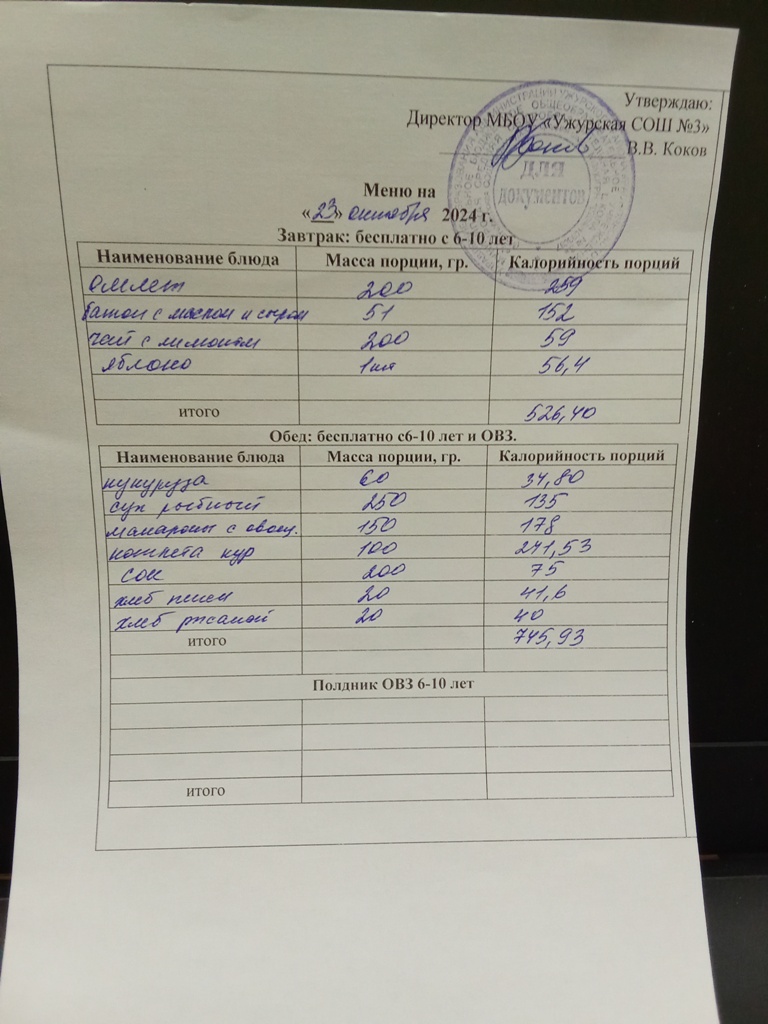 Утверждаю:
Директор МБОУ «Ужурская СОШ №3»
В.В. Коков
ДЛЯ
ДОКУМЕНТОВ
Меню на
«23» октября 2024 г.
Завтрак: бесплатно с 6-10 лет
Наименование блюда Масса порции, гр. Калорийность порций
омлет 200 259
батон с маслом и сыром 51 152
чай с лимоном 200 59
яблоко 1шт 56,4
итого 526,40
Обед: бесплатно с6-10 лет и ОВЗ.
Наименование блюда Масса порции, гр. Калорийность порций
кукуруза 60 34,80
суп рыбный 250 135
макароны с овощ. 150 178
котлета кур 100 241,53
сок 200 75
хлеб пшен 20 41,6
хлеб ржаной 20 40
итого 745,93
Полдник ОВЗ 6-10 лет
итого